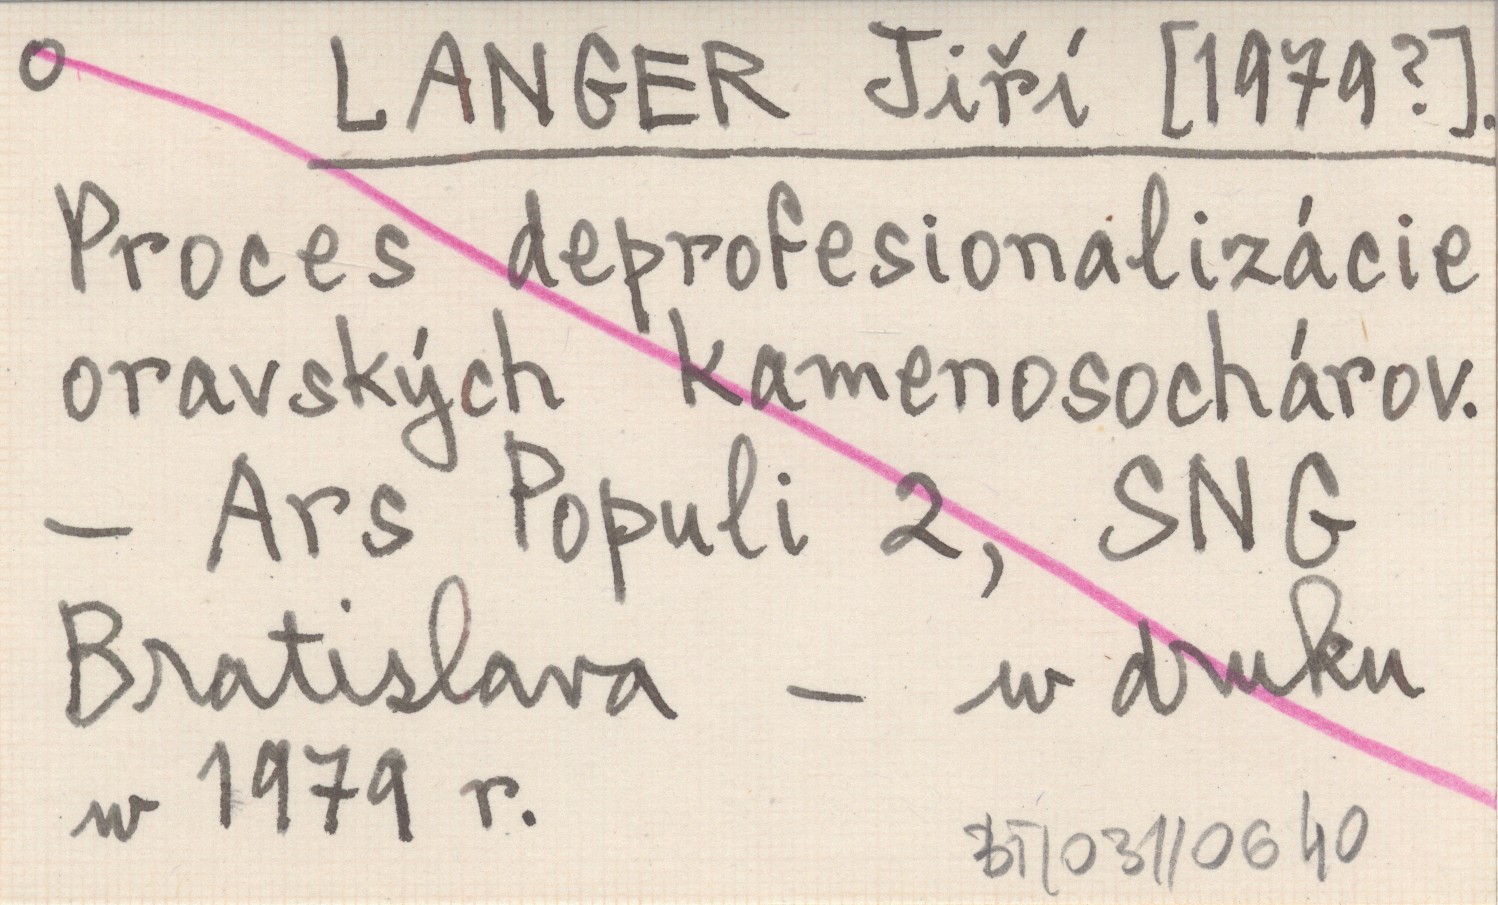 o LANGER Jiří [1979?].
Proces deprofesionalizácie
oravských kamenosochárov.
– Ars Populi 2, SNG
Bratislava – w druku
w 1979 r.